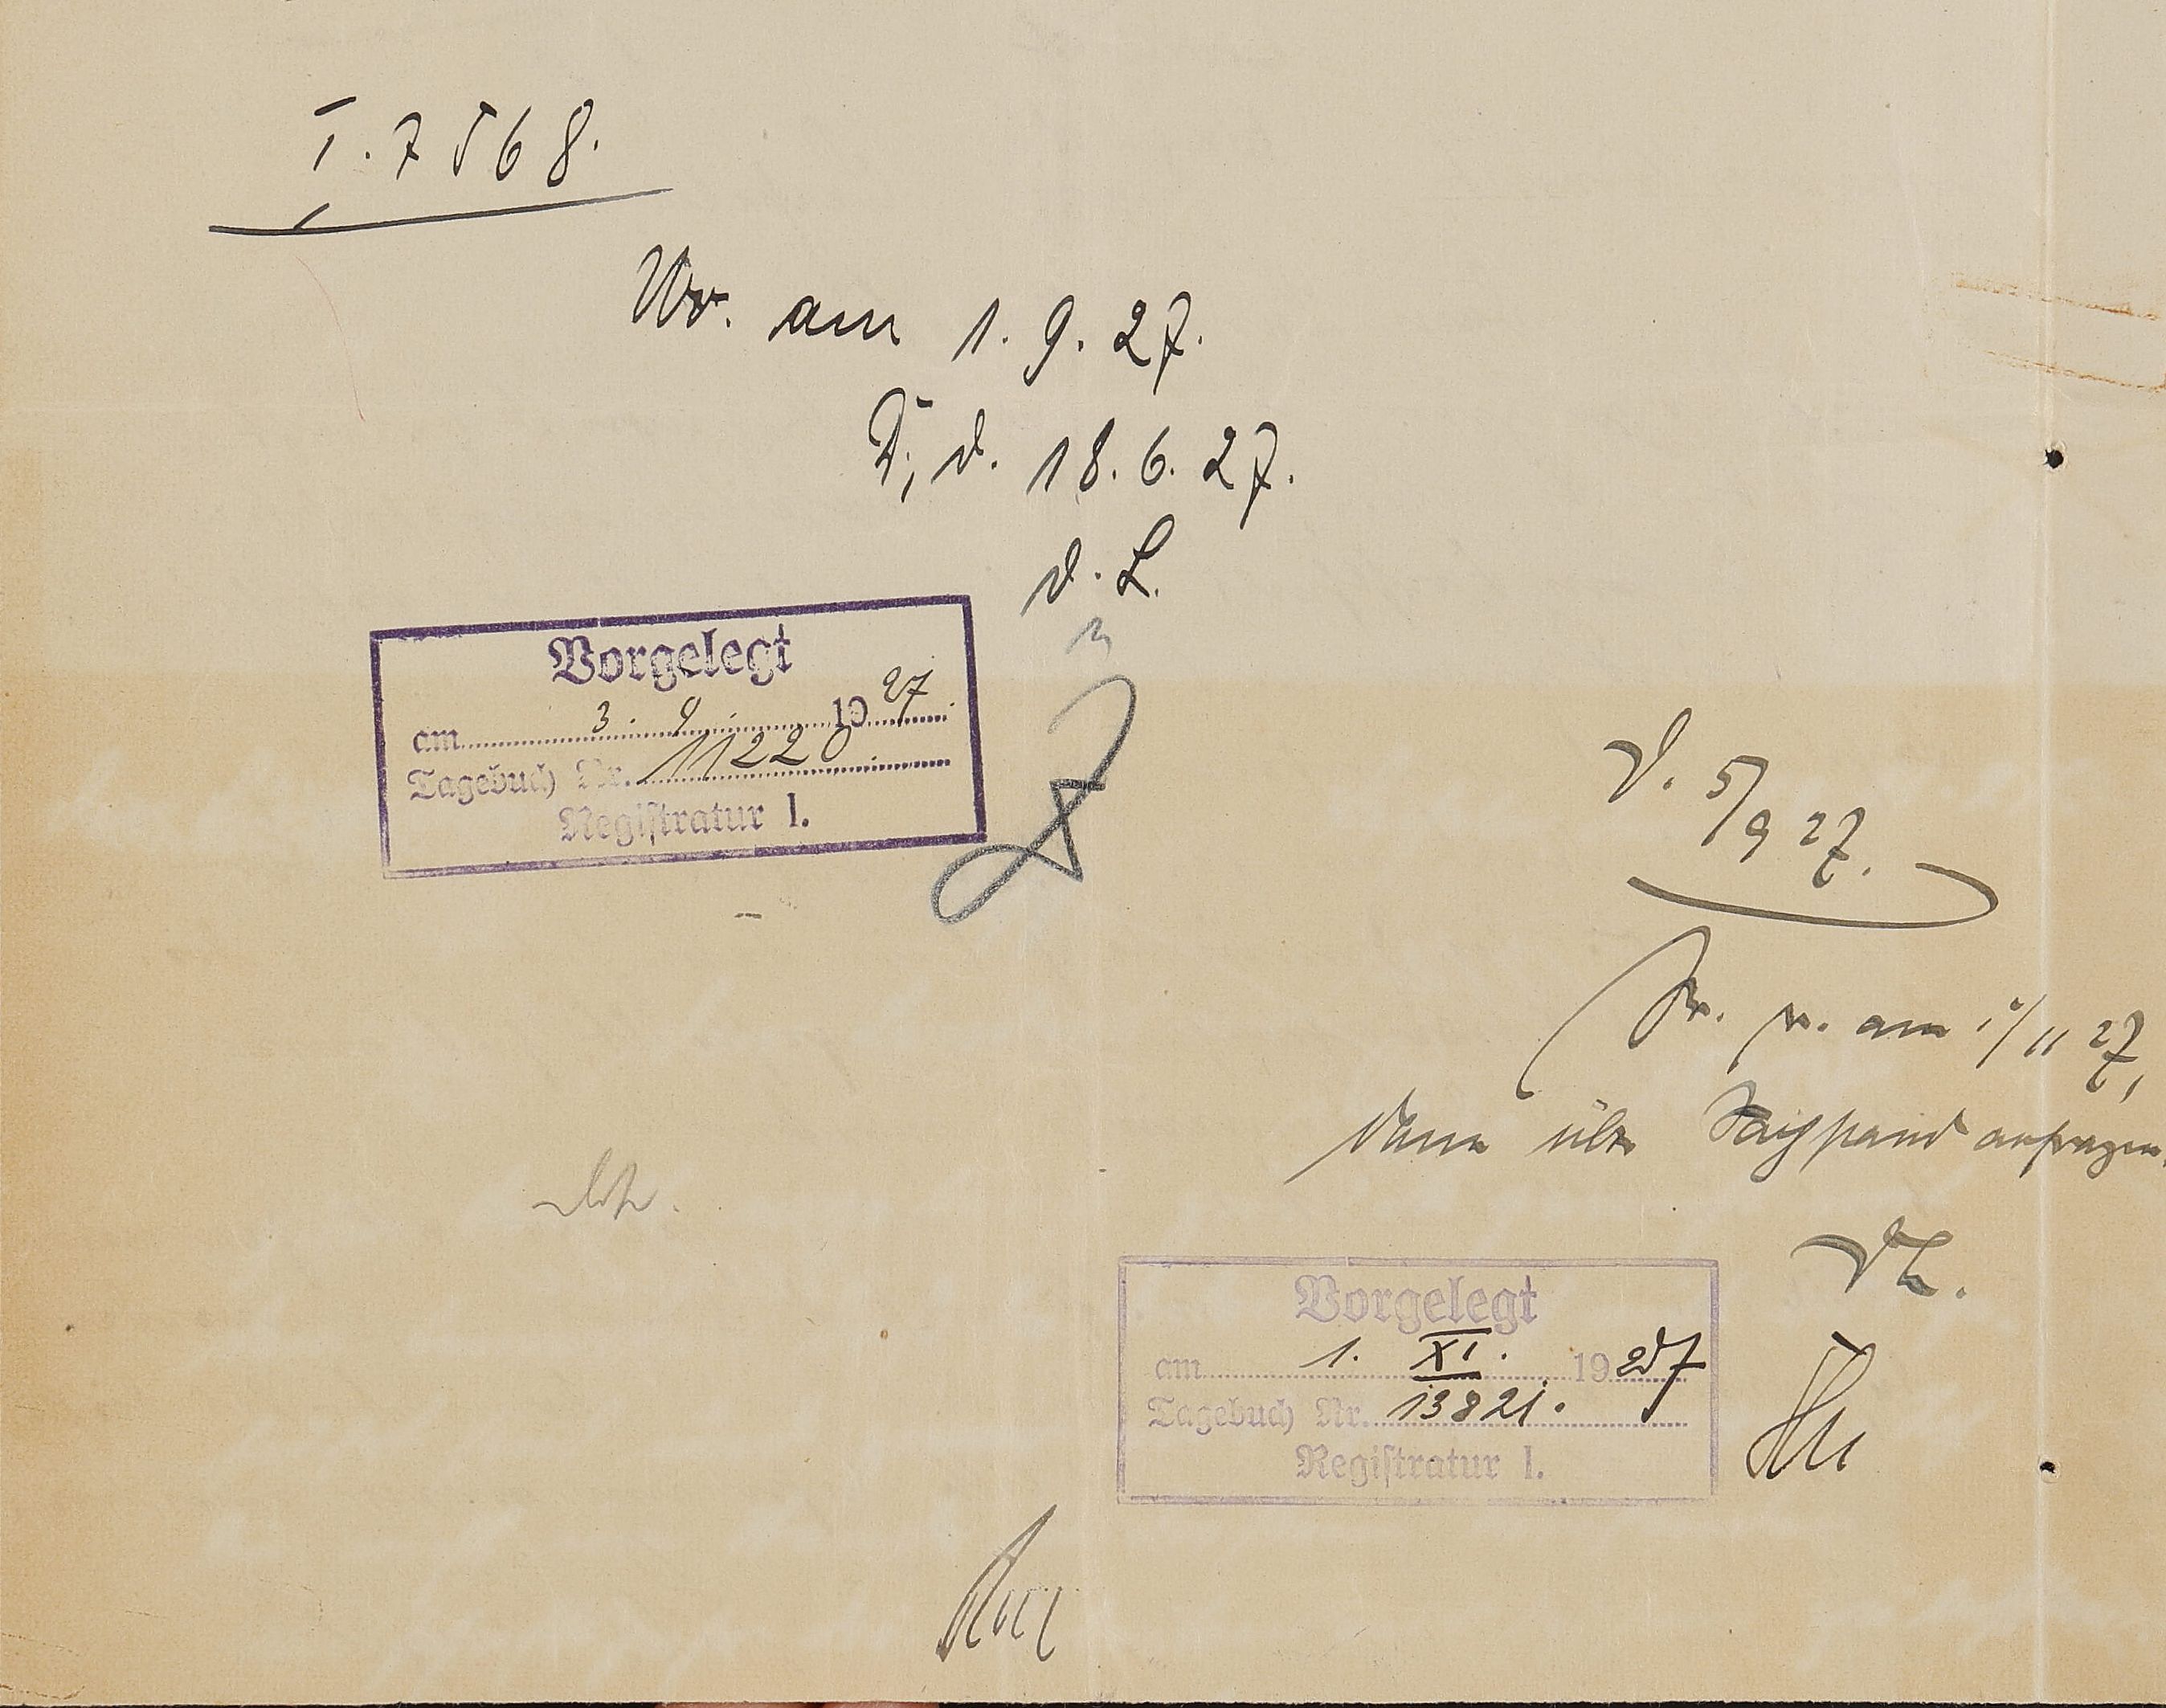 I. 7568.
Wv. am 1. 9. 27.
D., d. 18. 6. 27.
d. L.
Vorgelegt
am 3. 9. 1927
Tagebuch Nr. 11220
Registratur I.
V. 5/9 27.
am 1/11 27,
dann über anfragen.
Vorgelegt
am 1. XI. 1927
Tagebuch Nr. 13821.
Registratur I.